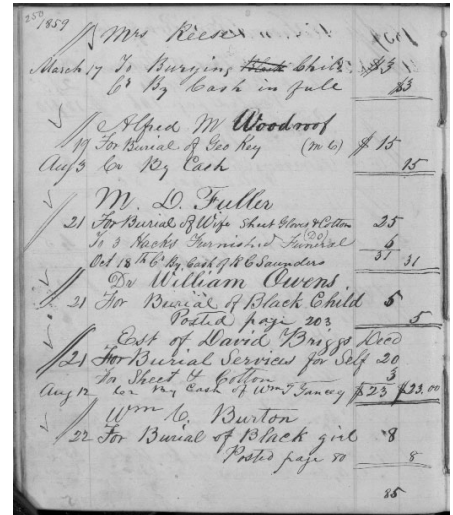 250
1859
Mrs Reese
March 17 To Burying Black Child $3
Cr By Cash in full $3
Alfred M Woodroof
19 For Burial of Geo Key (m C) $15
Aug 3 Cr By Cash 15
M. D. Fuller
21 For Burial of Wife Sheet Gloves & Cotton 25
To 3 Hacks Furnished Funeral 6
Oct 18th Cr By Cash of R C Saunders 31 31
Dr William Owens
21 For Burial of Black Child 5
Posted page 203 5
Est of David Briggs Decd
21 For Burial Services for Self 20
For Sheet & Cotton 3
Aug 12 By Cash of Wm T Yancey $23 $23.00
Wm C. Burton
22 For Burial of Black girl 8
Posted page 80 8
85